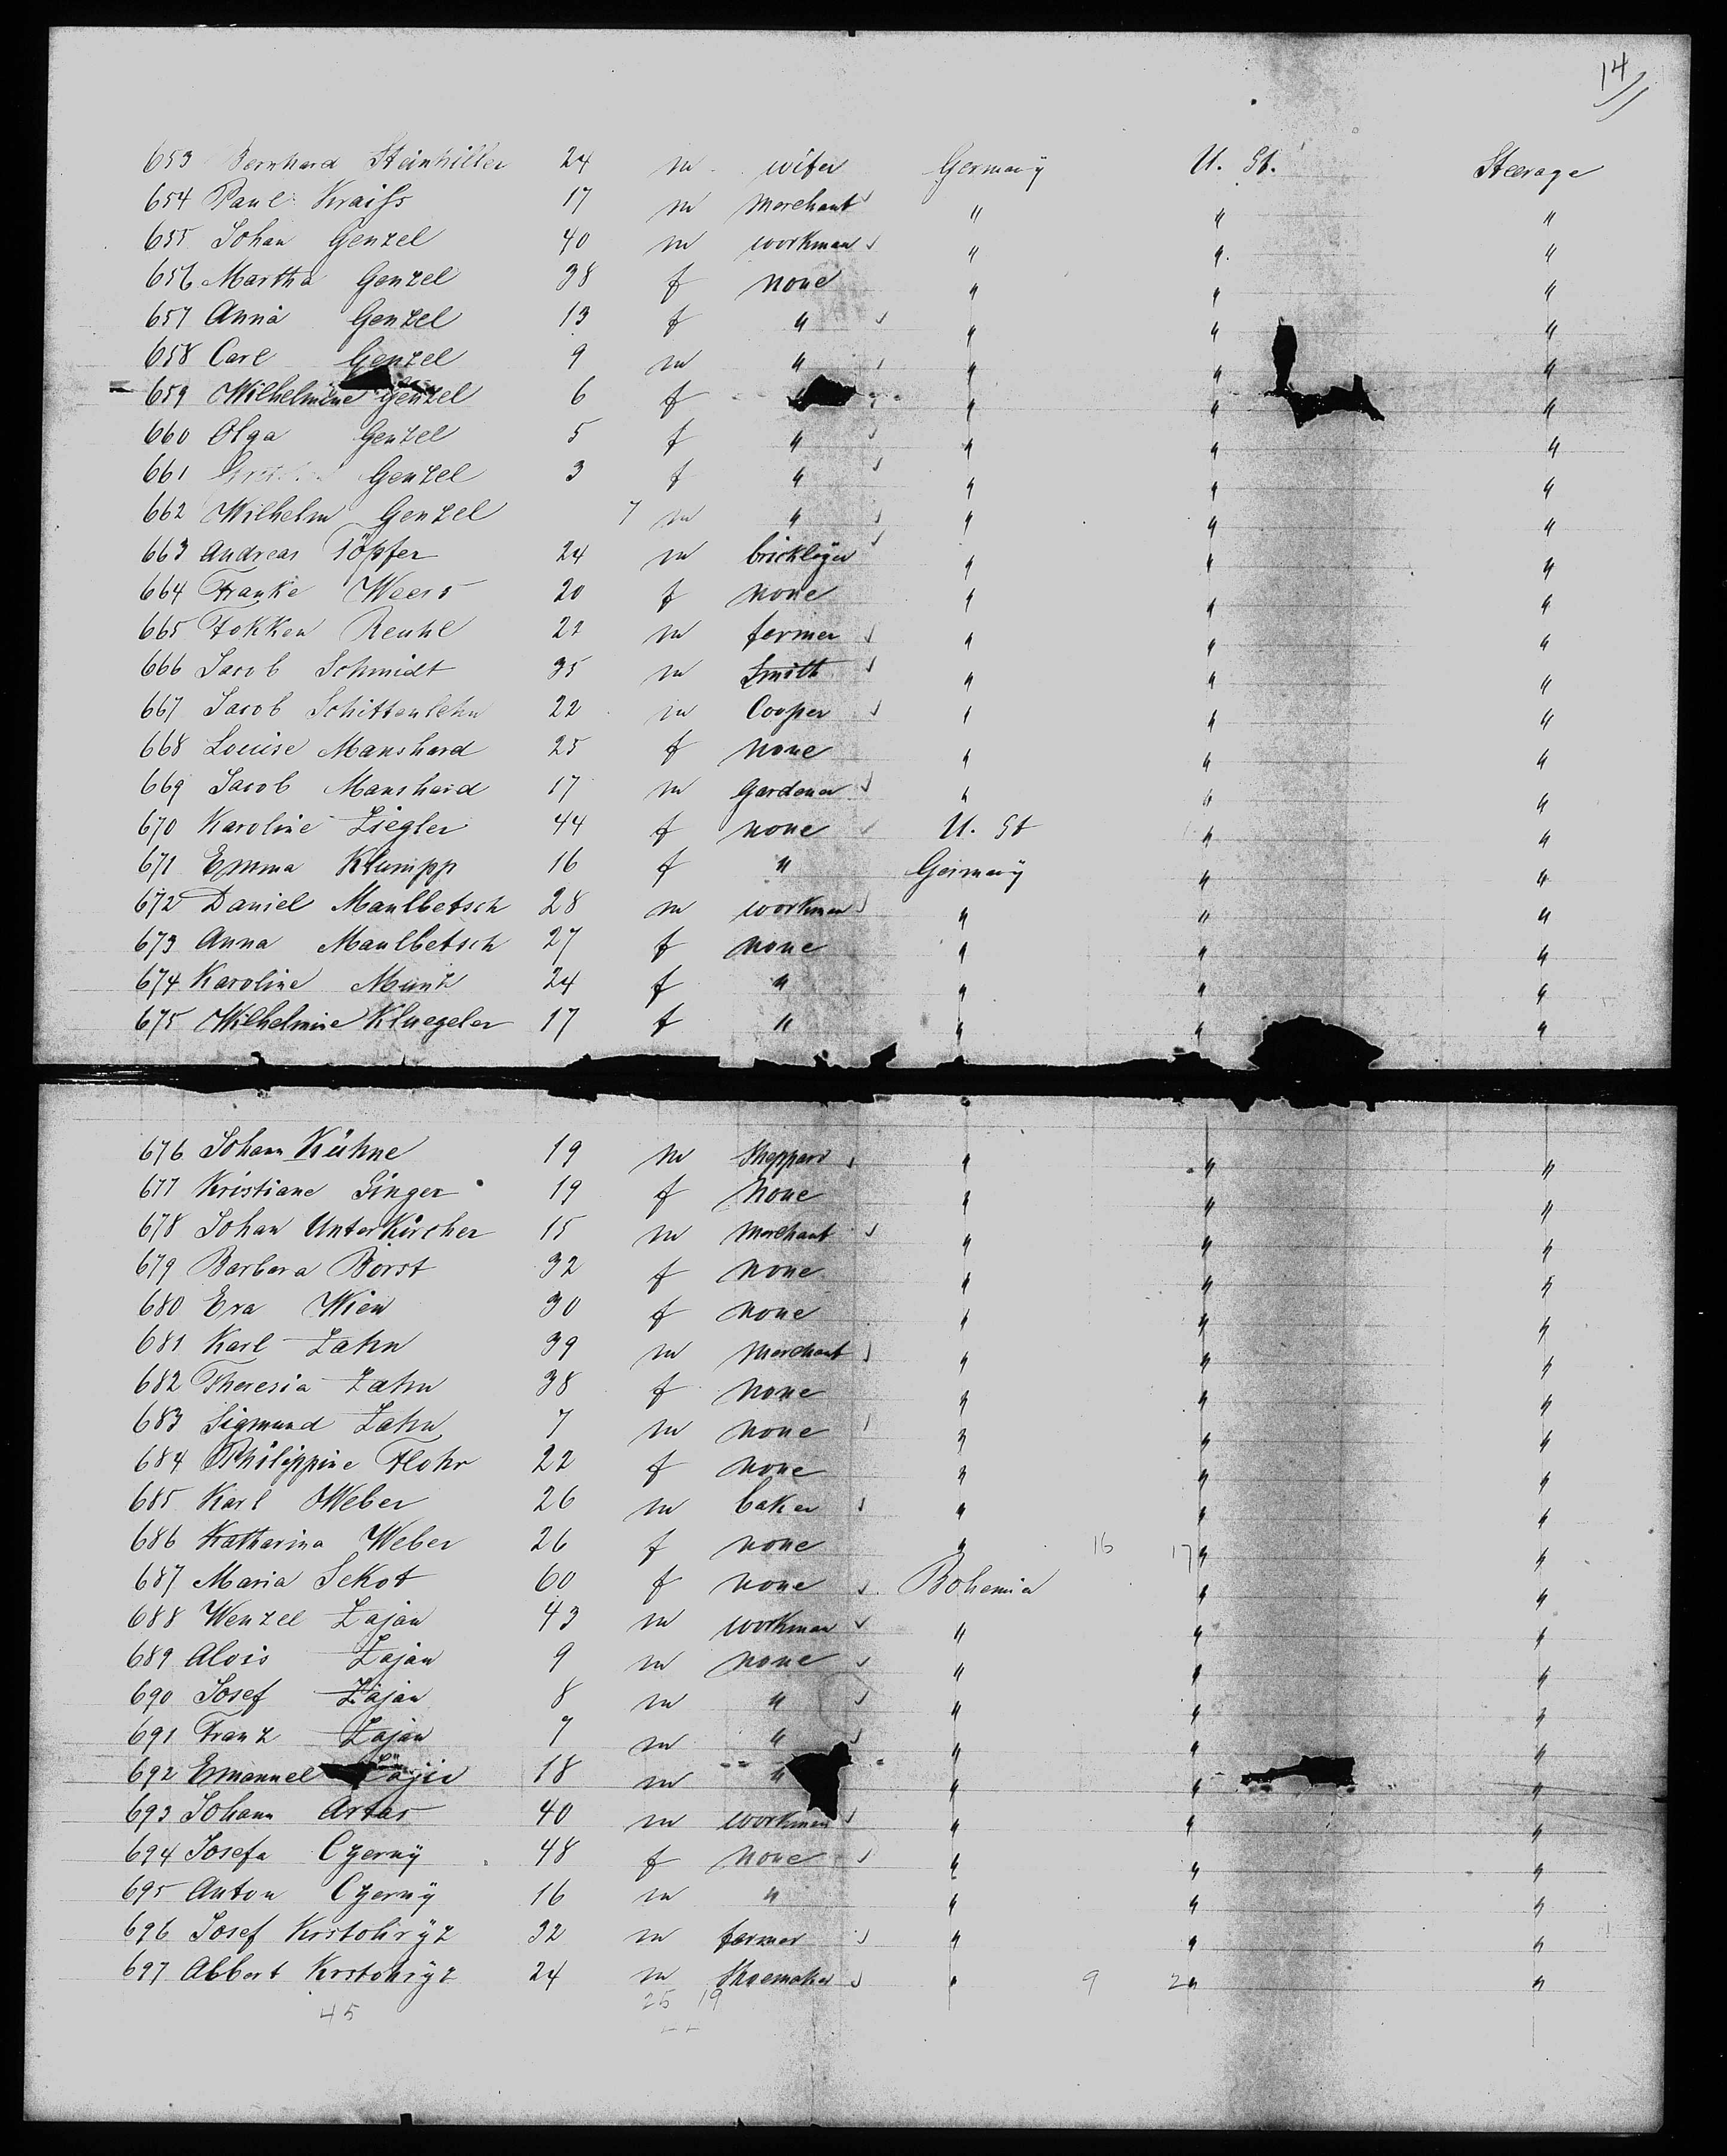 14//
653 Bernhard Steinhiller 24 m wifer Germany U. St. Steerage
654 Paul Kraiss 17 m merchant " " "
655 Johan Genzel 40 m workman " " "
656 Martha Genzel 38 f none " " "
657 Anna Genzel 13 f " " " "
658 Carl Genzel 9 m " " " "
659 Wilhelmine Genzel 6 f " " "
660 Olga Genzel 5 f " " " "
661 Genzel 3 f " " " "
662 Wilhelm Genzel 7 m " " " "
663 Andreas Töpfer 24 m bricklayer " " "
664 Frauke Weers 20 f none " " "
665 Fokken Reuhl 22 m farmer " " "
666 Jacob Schmidt 35 m Smith " " "
667 Jacob Schittenlehn 22 m Cooper " " "
668 Louise Manshard 25 f none " " "
669 Jacob Manshard 17 m Gardener " " "
670 Karoline Ziegler 44 f none U. St "  "
671 Emma Klumpp 16 f " Germany " "
672 Daniel Maulbetsch 28 m workman " " "
673 Anna Maulbetsch 27 f none " " "
674 Karoline Munz 24 f " " " "
675 Wilhelmine Kluegeler 17 f " " " "
676 Johann Kühne 19 m Sheppard " " "
677 Kristiane Singer 19 f none " " "
678 Johan Unterkircher 15 m merchant " " "
679 Barbara Borst 32 f none " " "
680 Eva Wien 30 f none " " "
681 Karl Zahn 39 m merchant " " "
682 Theresia Zahn 38 f none " " "
683 Sigmund Zahn 7 m none " " "
684 Philippine Flohr 22 f none " " "
685 Karl Weber 26 m baker " " "
686 Katharina Weber 26 f none " 16 17 " "
687 Maria Sekot 60 f none Bohemia " "
688 Wenzel Zajan 43 m workman " " "
689 Alois Zajan 9 m none " " "
690 Josef Zajan 8 m " " " "
691 Franz Zajan 7 m " " " "
692 Emanuel 18 m " " " "
693 Johann Artas 40 m workman " " "
694 Josefa Czerny 48 f none " " "
695 Anton Czerny 16 m " " " "
696 Josef Krstohryz 32 m farmer " " "
697 Albert Krstohryz 24 m Shoemaker " 9 2 " "
45 25 19